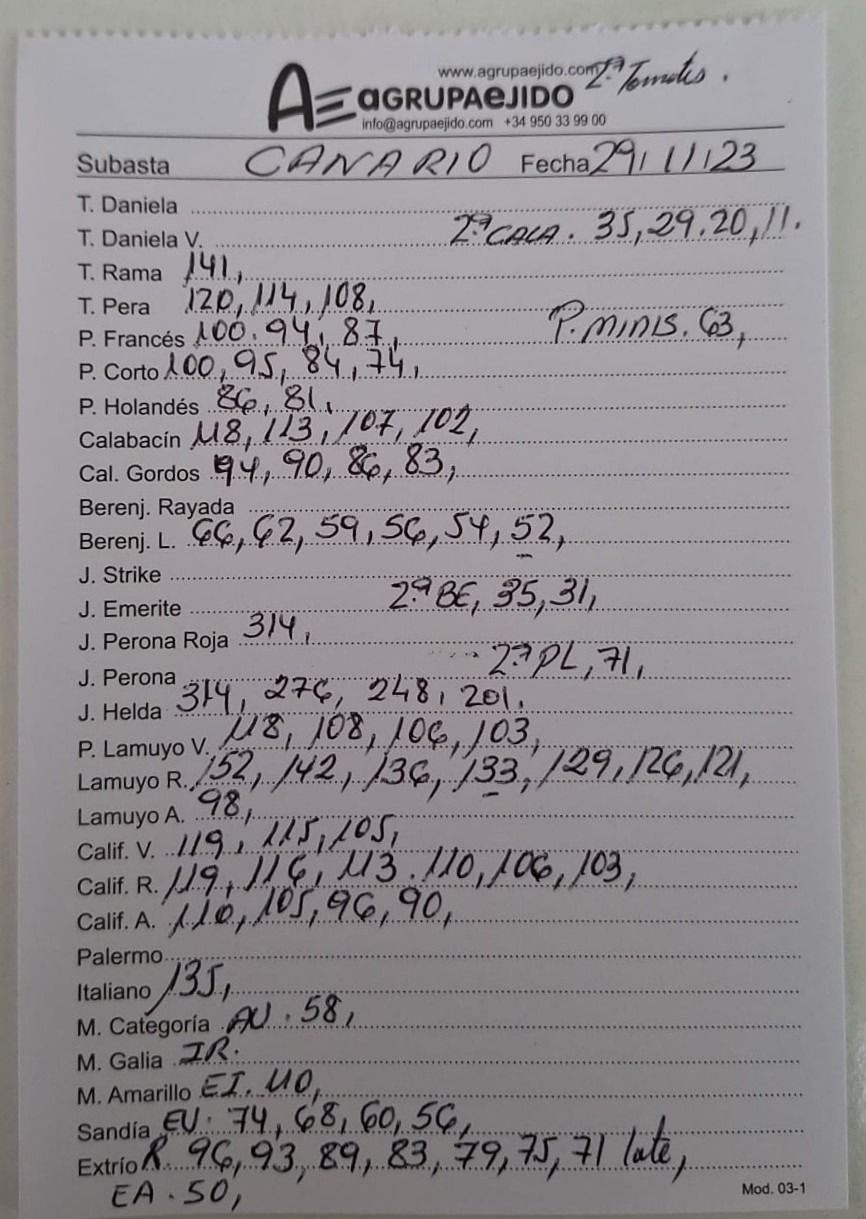 www.agrupaejido.com 2ª Tomates.
AGRUPAEJIDO
info@agrupaejido.com +34 950 33 99 00
Subasta CANARIO Fecha 29/11/23
T. Daniela
T. Daniela V. 2ª CALA. 35, 29. 20, 11.
T. Rama 141,
T. Pera 120, 114, 108,
P. Francés 100. 94, 87, P. MINIS. 63,
P. Corto 100, 95, 84, 74,
P. Holandés 86, 81,
Calabacín 118, 113, 107, 102,
Cal. Gordos 94, 90, 86, 83,
Berenj. Rayada
Berenj. L. 66, 62, 59, 56, 54, 52,
J. Strike
J. Emerite 2ª BE, 35, 31,
J. Perona Roja 314,
J. Perona 2ª PL, 71,
J. Helda 314, 276, 248, 201.
P. Lamuyo V. 118, 108, 106, 103,
Lamuyo R. 152, 142, 136, 133, 129, 126, 121,
Lamuyo A. 98,
Calif. V. 119, 115, 105,
Calif. R. 119, 116, 113. 110, 106, 103,
Calif. A. 110, 105, 96, 90,
Palermo
Italiano 135,
M. Categoría AU. 58,
M. Galia IR.
M. Amarillo EI. 110,
Sandía EV. 74, 68, 60, 56,
Extrío R. 96, 93, 89, 83, 79, 75, 71 late,
EA. 50,
Mod. 03-1